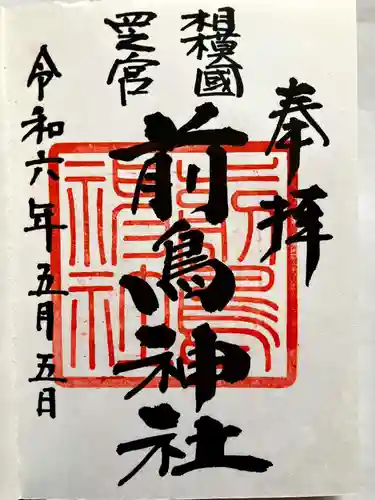 奉拝
相模國
四之宮
前鳥神社
令和六年五月五日
前鳥神社